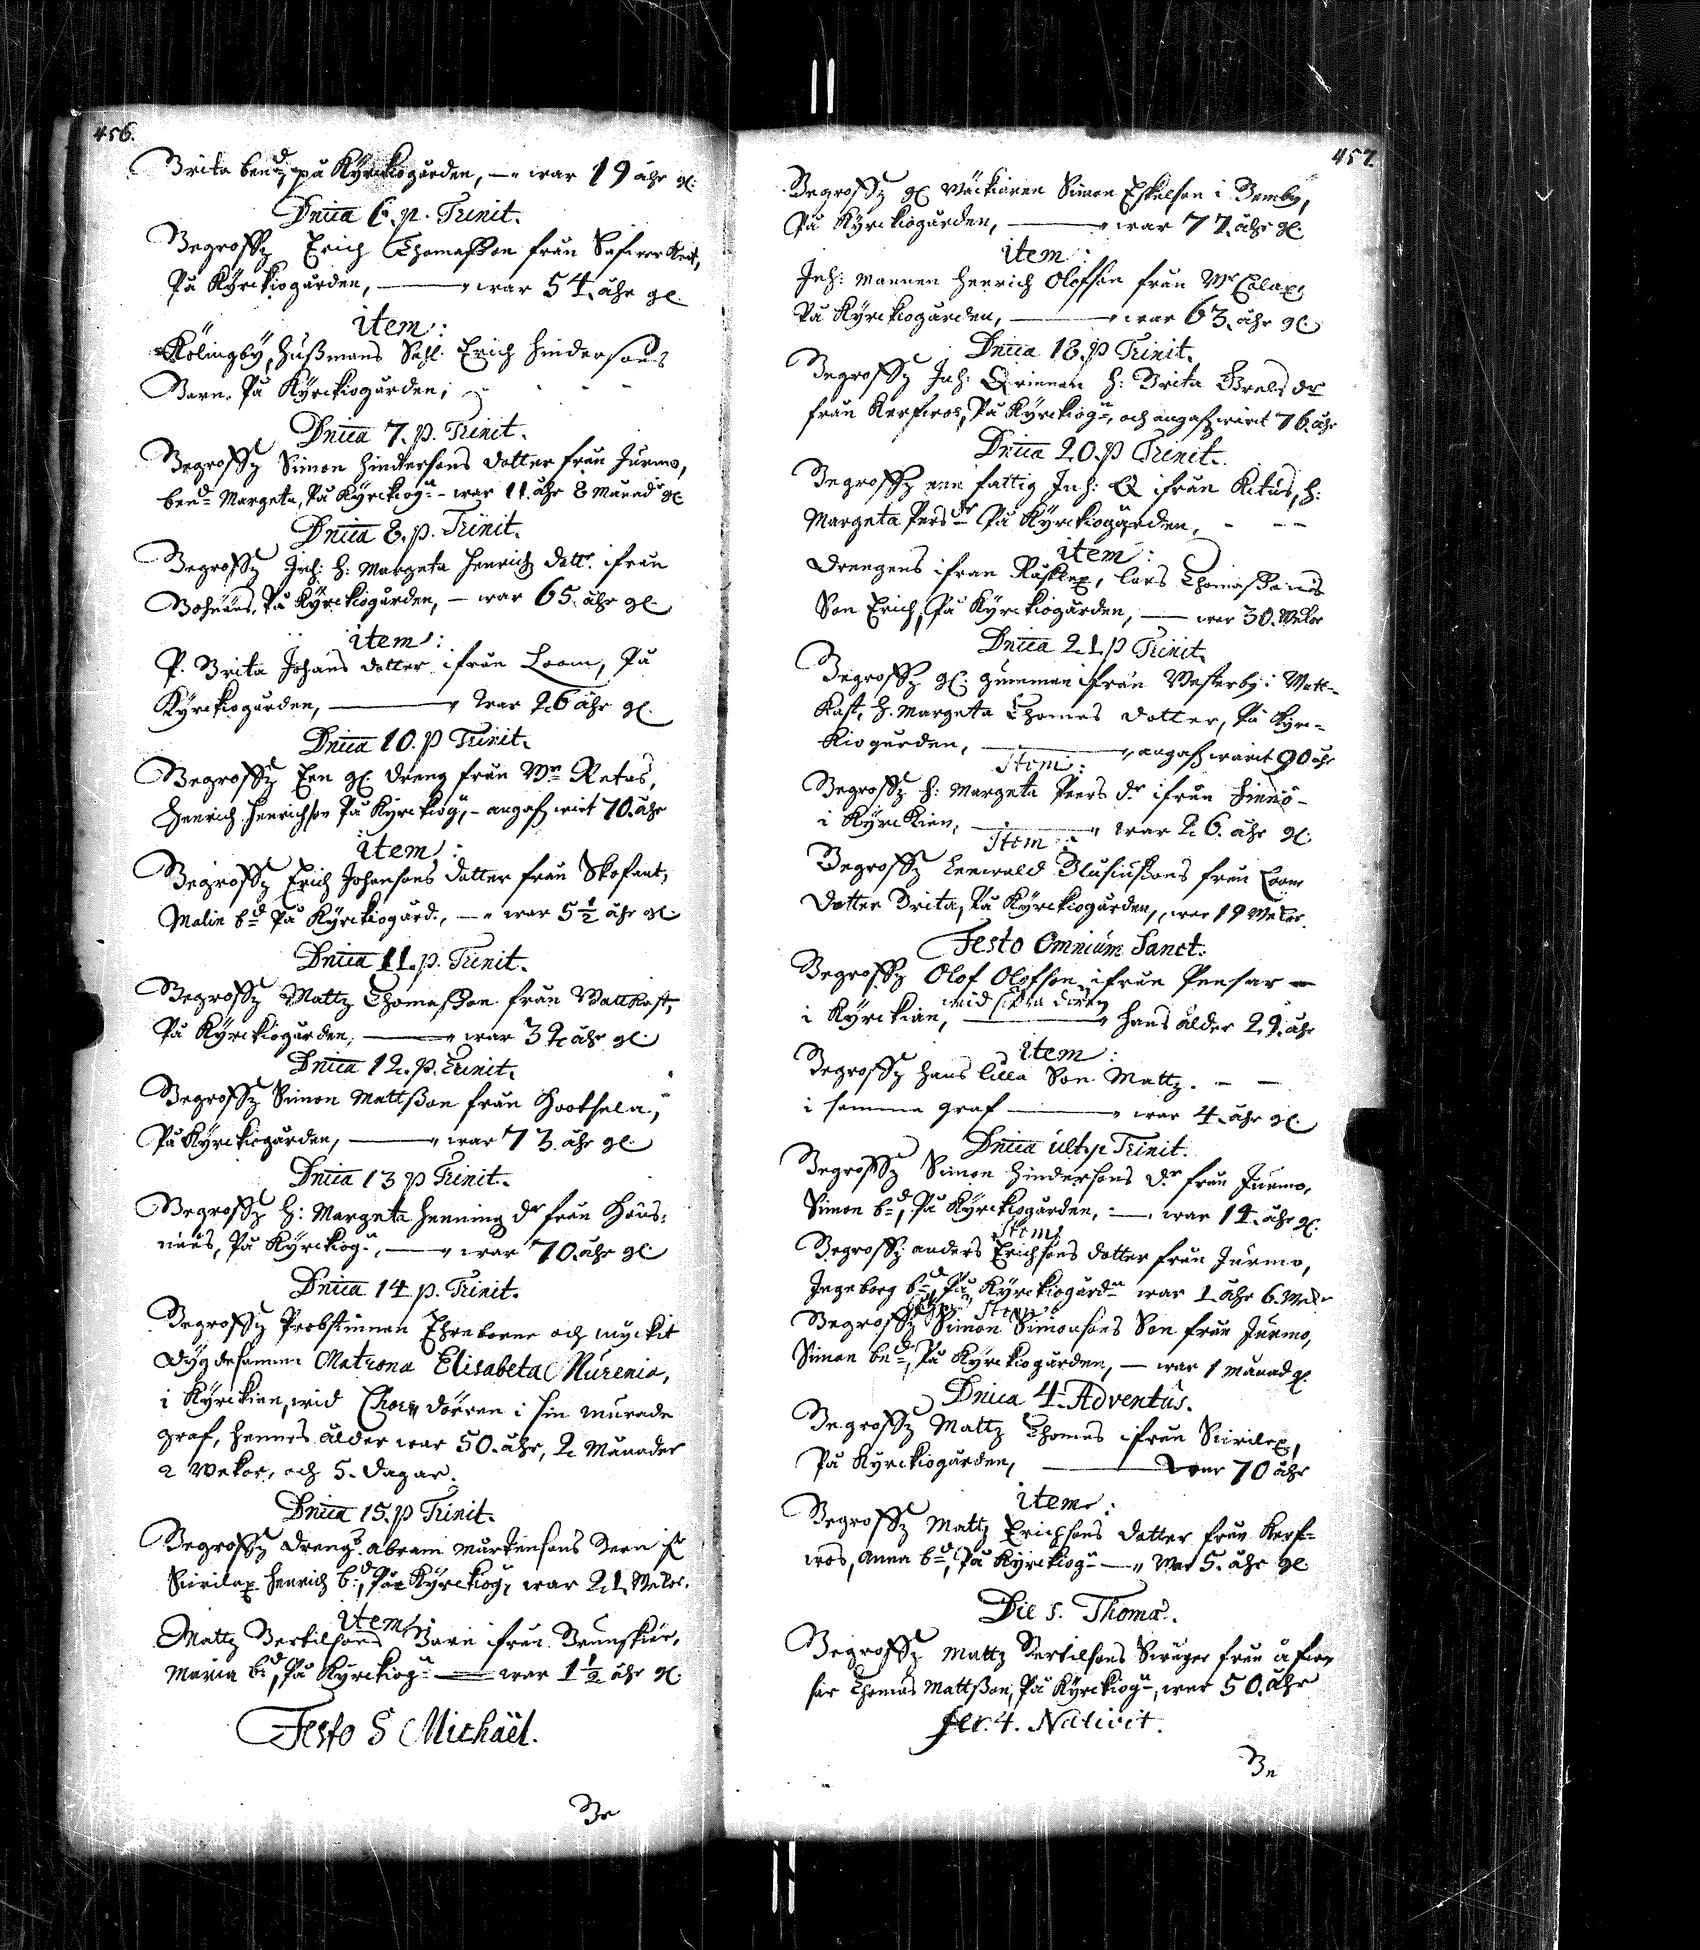 456.
Brita ben:d, på Kÿrckiogården, — war 19 åhr gl.
Dnica 6. p. Trinit.
Begroffz Erich Thomaßon från
På Kÿrckiogården, — war 54. åhr gl.
item:
Kölingbÿ, Hußmans Sahl. Erich Hindersons
Barn. På Kÿrckiogården;
Dnica 7. p. Trinit.
Begroffz Simon Hindersons dotter från Jurmo,
ben:d Margeta, På Kÿrckiog:n – war 11. åhr 8 Månadr gl.
Dnica 8. p. Trinit.
Begroffz Inh: H: Margeta Henrichz dottr. ifrån
Bohnäs, På Kÿrckiogården, — war 65. åhr gl.
item:
P. Brita Johans dotter ifrån Loom, På
Kÿrckiogården, — war 26 åhr gl.
Dnica 10. p Trinit.
Begroffz Een gl. dreng från Wn Retas,
Henrich Henrichson På Kÿrckiog:n, – angafz wirt 70. åhr
item:
Begroffz Erich Johansons dotter från Skofant,
Malin b:d På Kÿrckiogård., — war 5 1/2 åhr gl.
Dnica 11. p. Trinit.
Begroffz Mattz Thomaßon från Wattkast,
På Kÿrckiogården, — war 32 åhr gl.
Dnica 12. p. Trinit.
Begroffz Simon Mattßon från
På Kÿrckiogården, — war 73 åhr gl.
Dnica 13 p Trinit.
Begroffz H: Margeta Henning dr från Hÿus-
näs, På Kÿrckiog:n, — war 70. åhr gl.
Dnica 14 p. Trinit.
Begroffz Probstinnan Ehreborne och mÿckit
dÿgdesamme Matrona Elisabeta Nurenia,
i Kÿrckian, wid Chors dörren i sin murade
graf, hennes ålder war 50. åhr, 2 Månader
2 Wekor, och 5. dagar.
Dnica 15. p Trinit.
Begroffz drengs Abram Mårtensons Barn
Henrich b:d, På Kÿrckiog:n war 21 Wekor.
item:
Mattz Bertilsons Barn ifrån Brunskiär,
Maria b:d, På Kÿrckiog:n — war 1 1/2 åhr gl.
Festo S Michäel.
Be
457
Begroffz gl. Wäcktaren Simon Eskelson i Bembÿ,
På Kÿrckiogården, — war 77. åhr gl.
item:
Inh: Mannen Henrich Olofson från
På Kÿrckiogården, — war 63. åhr gl.
Dnica 18. p Trinit.
Begroffz Inh: Qvinnan H: Brita Grels dr
från På Kÿrckiog:n, och angafz warit 76. åhr
Dnica 20. p Trinit.
Begroffz een fattig Inh: Q ifrån Kitus, H:
Margeta Pers dr På Kÿrckiogården,
item:
Drengens ifrån Lars Thomaßons
Son Erich, På Kÿrckiogården, — war 30. Wekor
Dnica 21. p Trinit.
Begroffz gl. gumman ifrån Westerbÿ i Watt-
kast, H. Margeta Thomas dotter, På Kÿrc-
kiogården, — angafz warit 90 åhr
Item:
Begroffz H: Margeta Peers dr ifrån Finnö
i Kÿrckian, — war 26. åhr gl.
Item:
Begroffz från Loom
dotter Brita, På Kÿrckiogården, war 19 Wekor.
Festo Omnium Sanct.
Begroffz Olof Olofson ifrån Pensar
i Kÿrckian, — hans ålder 29. åhr
item:
Begroffz hans lilla Son Mattz.
i samma graf — war 4. åhr gl.
Dnica ult. p Trinit.
Begroffz Simon Hindersons dr från Jurmo,
Simon b:d, På Kÿrckiogården, — war 14. åhr gl.
Item:
Begroffz Anders Erichsons dotter från Jurmo,
Ingeborg b:d, På Kÿrckiogård:n war 1 åhr 6. Wekr
Item:
Begroffz Simon Simonsons Son från Jurmo,
Simon be:d, På Kÿrckiogården, — war 1 månad gl.
Dnica 4. Adventus.
Begroffz Mattz Thomas ifrån
På Kÿrckiogården, — war 70 åhr
item:
Begroffz Mattz Erichsons dotter från
Anna b:d, På Kÿrckiog:n — war 5. åhr gl.
Die S. Thomæ.
Begroffz Mattz Bertilsons Swåger från
Thomas Mattßon, På Kÿrckiog:n, war 50. åhr
fer. 4. Nativit.
Be